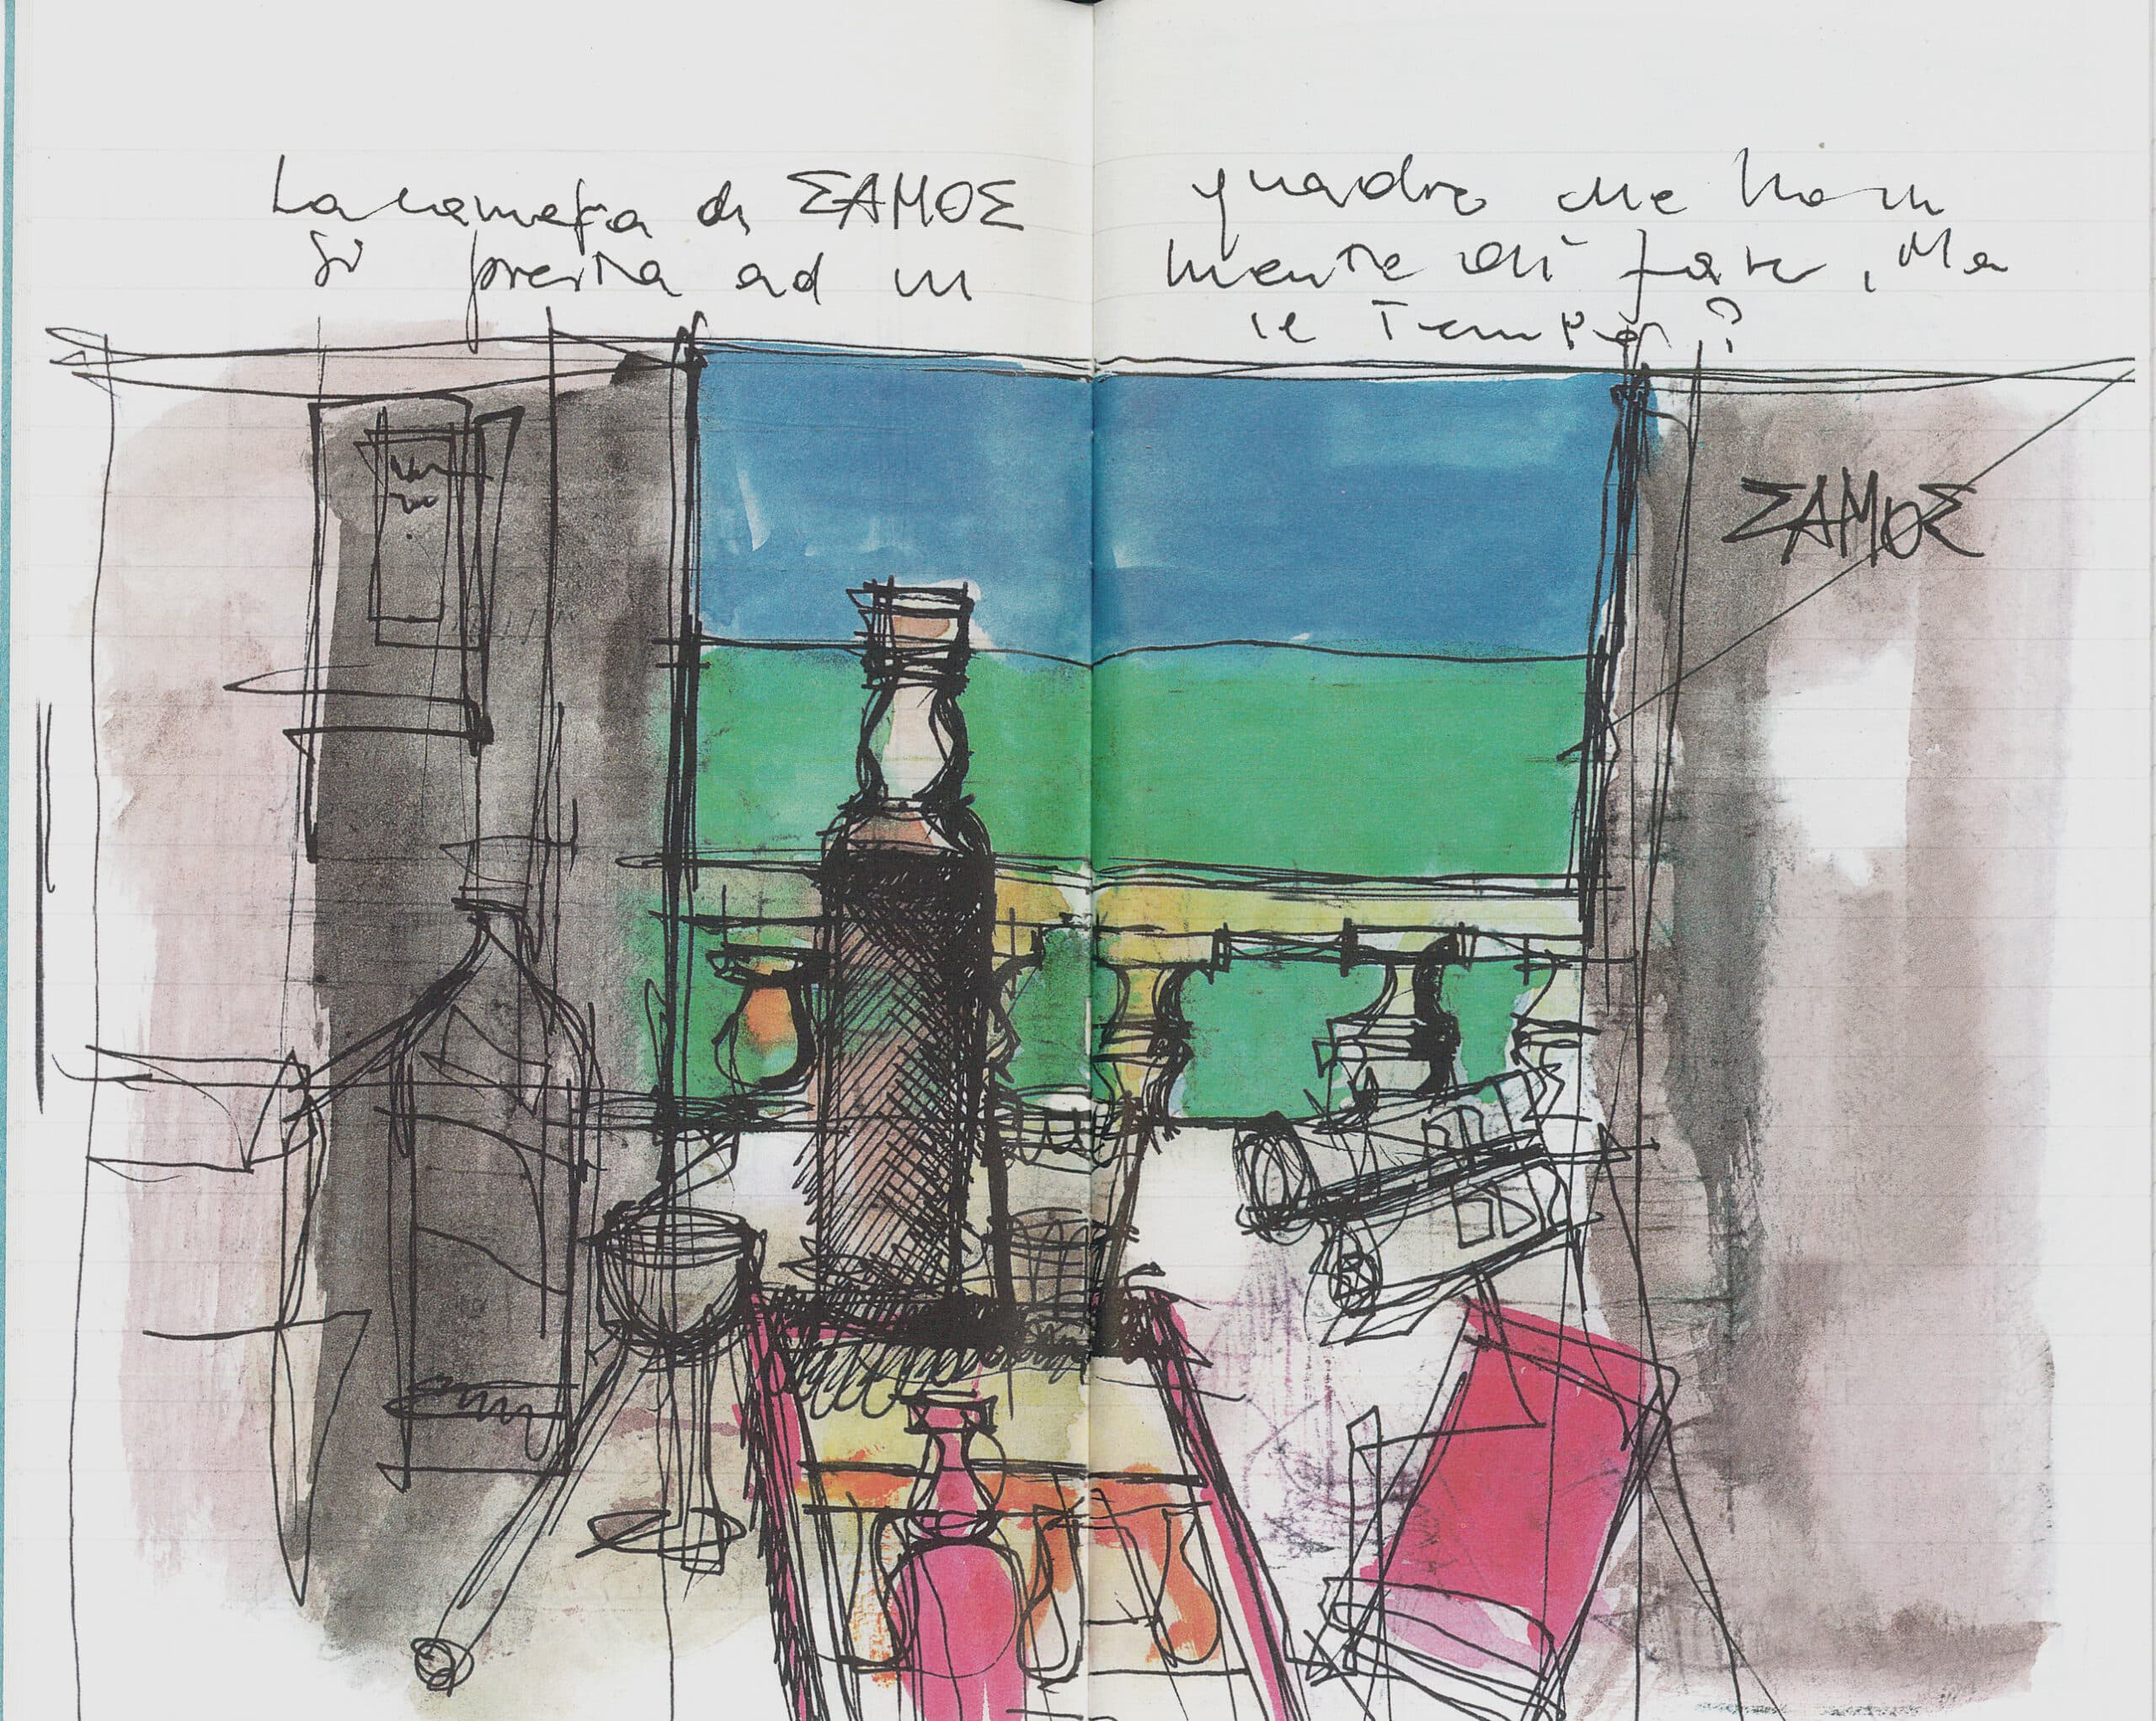 La camera di ΣΑΜΟΣ
si presta ad un
quadro che ho in
mente di fare, Ma
il Tempo?
ΣΑΜΟΣ